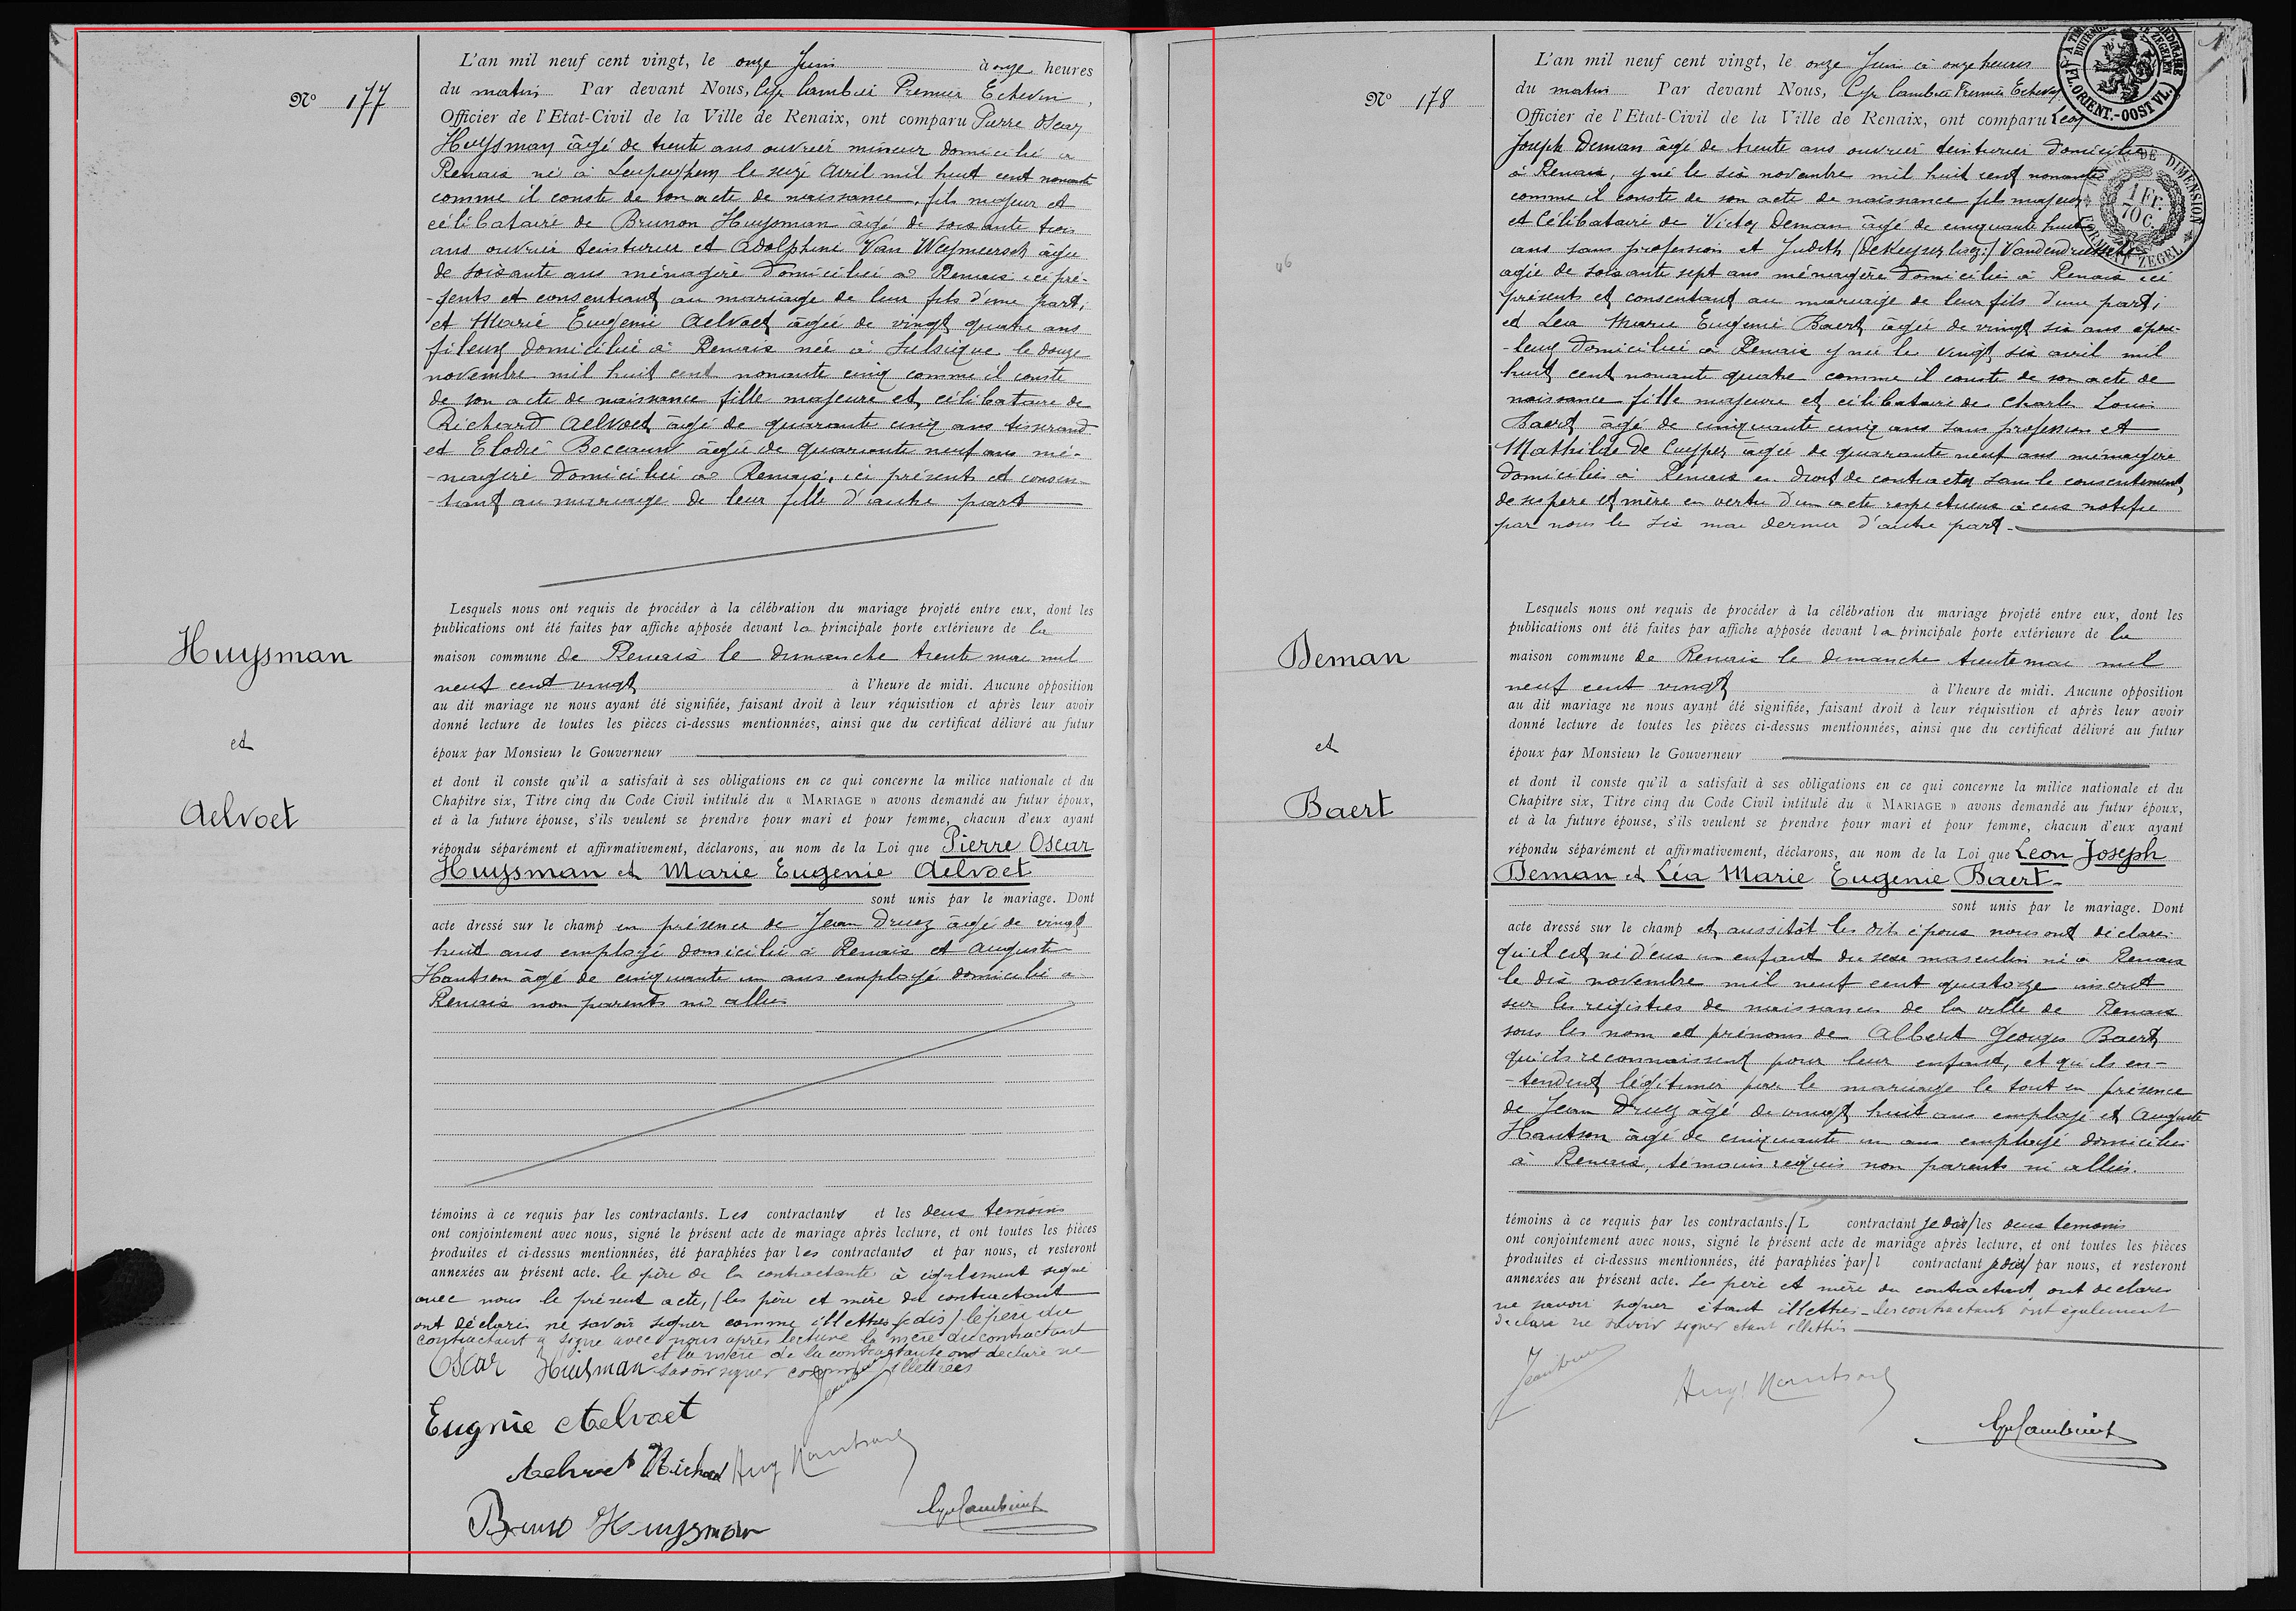 N° 177
L'an mil neuf cent vingt, le onze Juin à onze heures
du matin Par devant Nous, Premier Echevin,
Officier de l'Etat-Civil de la Ville de Renaix, ont comparu Pierre Oscar
Huysman âgé de trente ans ouvrier mineur domicilié à
Renaix né à le seize Avril mil huit cent nonante
comme il conste de son acte de naissance, fils majeur et
célibataire de Brunon Huysman âgé de soixante trois
ans ouvrier teinturier et Adolphine Van Weymeersch âgée
de soixante ans ménagère domiciliés à Renaix ici pré-
-sents et consentant au mariage de leur fils d'une part,
et Marie Eugenie Aelvoet âgée de vingt quatre ans
fileuse domiciliée à Renaix née à Sulsique le douze
novembre mil huit cent nonante cinq comme il conste
de son acte de naissance fille majeure et célibataire de
Richard Aelvoet âgé de quarante cinq ans tisserand
et Elodie âgée de quarante neuf ans mé-
-nagère domiciliés à Renaix, ici présents et consen-
-tant au mariage de leur fille d'autre part
Lesquels nous ont requis de procéder à la célébration du mariage projeté entre eux, dont les
publications ont été faites par affiche apposée devant la principale porte extérieure de la
maison commune de Renaix le dimanche trente mai mil
neuf cent vingt à l'heure de midi. Aucune opposition
au dit mariage ne nous ayant été signifiée, faisant droit à leur réquisition et après leur avoir
donné lecture de toutes les pièces ci-dessus mentionnées, ainsi que du certificat délivré au futur
époux par Monsieur le Gouverneur
et dont il conste qu'il a satisfait à ses obligations en ce qui concerne la milice nationale et du
Chapitre six, Titre cinq du Code Civil intitulé du « MARIAGE » avons demandé au futur époux,
et à la future épouse, s'ils veulent se prendre pour mari et pour femme, chacun d'eux ayant
répondu séparément et affirmativement, déclarons, au nom de la Loi que Pierre Oscar
Huysman et Marie Eugenie Aelvoet
sont unis par le mariage. Dont
acte dressé sur le champ en présence de Jean Druez âgé de vingt
huit ans employé domicilié à Renaix et Auguste
Hantson âgé de cinquante un ans employé domicilié à
Renaix non parents ni alliés
Huysman
et
Aelvoet
témoins à ce requis par les contractants. Les contractants et les deux témoins
ont conjointement avec nous, signé le présent acte de mariage après lecture, et ont toutes les pièces
produites et ci-dessus mentionnées, été paraphées par les contractants et par nous, et resteront
annexées au présent acte. le père de la contractante à également signé
avec nous le présent acte, (les père et mère du contractant
ont déclaré ne savoir signer comme illettrés je dis) le père du
contractant a signé avec nous après lecture la mère du contractant
et la mère de la contractante ont déclaré ne
savoir signer comme illettrées
Oscar Huysman
Eugnie Aelvoet
Aelvoet Richard Aug Hantson
Bruno Huysman
N° 178
L'an mil neuf cent vingt, le onze Juin à onze heures
du matin Par devant Nous, Premier Echevin
Officier de l'Etat-Civil de la Ville de Renaix, ont comparu Léon
Joseph Deman âgé de trente ans ouvrier teinturier domicilié
à Renaix, y né le six novembre mil huit cent nonante
comme il conste de son acte de naissance fils majeur
et célibataire de Victor Deman âgé de cinquante huit
ans sans profession et Judith (Dekeyser lisez:) Vandendriessche
agée de soixante sept ans ménagère domiciliés à Renaix ici
présents et consentant au mariage de leur fils d'une part;
et Lea Marie Eugenie Baert âgée de vingt six ans épeu-
-leuse domiciliée à Renaix y née le vingt six avril mil
huit cent nonante quatre comme il conste de son acte de
naissance fille majeure et célibataire de Charles Louis
Baert âgé de cinquante cinq ans sans profession et
Mathilde De Cuyper âgée de quarante neuf ans ménagère
domiciliés à Renaix en droit de contracter sans le consentement
de ses père et mère en vertu d'un acte respectueux à eux notifié
par nous le six mai dernier d'autre part.
Lesquels nous ont requis de procéder à la célébration du mariage projeté entre eux, dont les
publications ont été faites par affiche apposée devant la principale porte extérieure de la
maison commune de Renaix le dimanche trente mai mil
neuf cent vingt à l'heure de midi. Aucune opposition
au dit mariage ne nous ayant été signifiée, faisant droit à leur réquisition et après leur avoir
donné lecture de toutes les pièces ci-dessus mentionnées, ainsi que du certificat délivré au futur
époux par Monsieur le Gouverneur
et dont il conste qu'il a satisfait à ses obligations en ce qui concerne la milice nationale et du
Chapitre six, Titre cinq du Code Civil intitulé du « MARIAGE » avons demandé au futur époux,
et à la future épouse, s'ils veulent se prendre pour mari et pour femme, chacun d'eux ayant
répondu séparément et affirmativement, déclarons, au nom de la Loi que Léon Joseph
Deman et Léa Marie Eugenie Baert
sont unis par le mariage. Dont
acte dressé sur le champ et aussitôt les dits époux nous ont déclaré
qu'il est né d'eux un enfant du sexe masculin né à Renaix
le dix novembre mil neuf cent quatorze inscrit
sur les registres de naissances de la ville de Renaix
sous les nom et prénoms de Albert Georges Baert,
qu'ils reconnaissent pour leur enfant, et qu'ils en-
-tendent légitimer par le mariage le tout en présence
de Jean Druez âgé de vingt huit ans employé et Auguste
Hantson âgé de cinquante un ans employé domiciliés
à Renaix, témoins requis non parents ni alliés.
Deman
et
Baert
témoins à ce requis par les contractants. (L contractant je dis) les deux témoins
ont conjointement avec nous, signé le présent acte de mariage après lecture, et ont toutes les pièces
produites et ci-dessus mentionnées, été paraphées par (l contractant je dis) par nous, et resteront
annexées au présent acte. Les père et mère du contractant ont déclaré
ne savoir signer étant illettrés - les contractants ont également
déclaré ne savoir signer étant illettrés
Aug Hantson
1 Fr.
70 C.